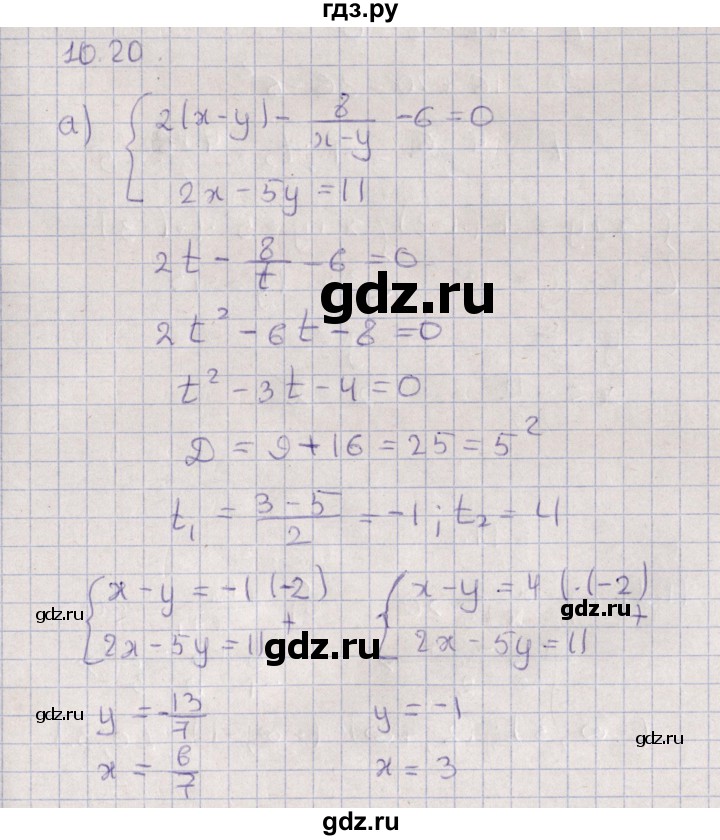 гдз.ру
10.20.
а) { 2(x-y) - 8/(x-y) - 6 = 0
2x - 5y = 11
2t - 8/t - 6 = 0
gdz.ru
2t² - 6t - 8 = 0
t² - 3t - 4 = 0
D = 9 + 16 = 25 = 5²
t₁ = (3-5)/2 = -1; t₂ = 4
{ x - y = -1 (-2) { x - y = 4 (·(-2)
gdz.ru gdz.ru
2x - 5y = 11 + 2x - 5y = 11 +
gdz.ru
y = -13/7 y = -1
gdz.ru gdz.ru
x = 6/7 x = 3
gdz.ru